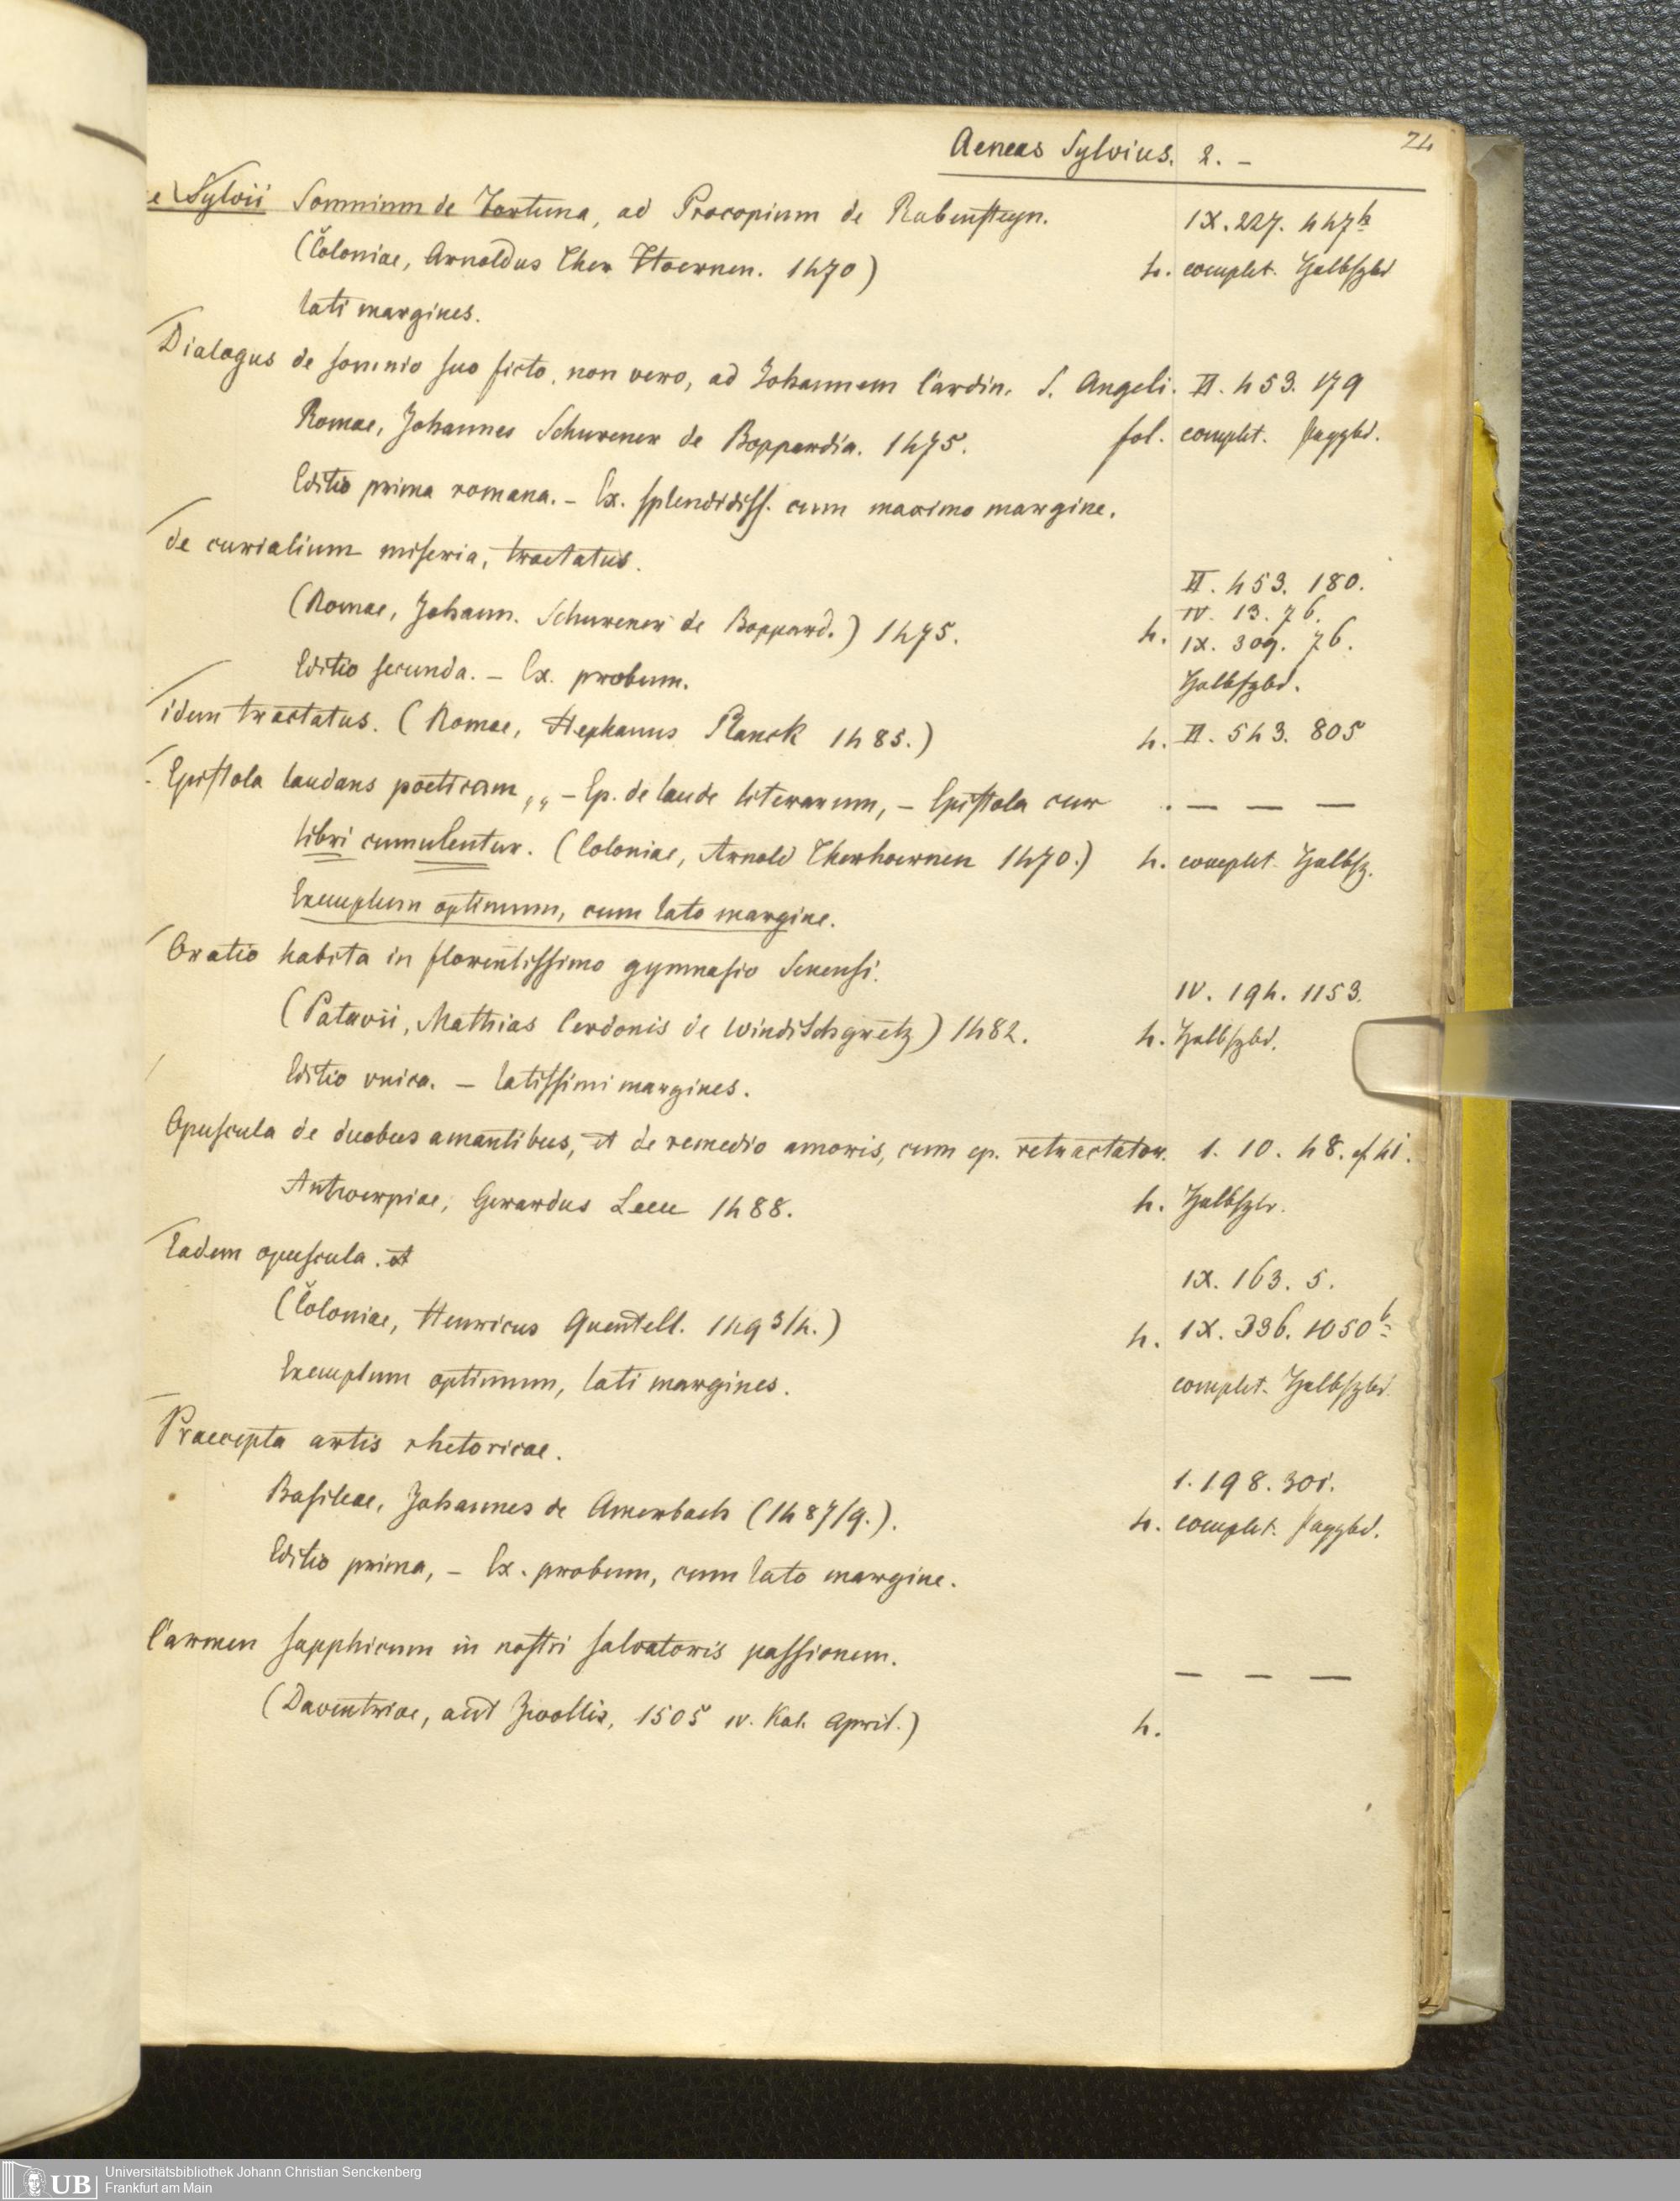 Aeneas Sylvius. 2. –
24
e Sylvii Somnium de Fortuna, ad Procopium de Rabensteyn. IX. 227. 447b
(Coloniae, Arnoldus Ther Hoernen. 1470) 4. complet. Halbfzbd
lati margines.
Dialogus de somnio suo ficto, non vero, ad Johannem Cardin. S. Angeli. II. 453. 179
Romae, Johannes Schurener de Boppardia. 1475. fol. complet. Pappbd.
Editio prima romana. – Ex. splendidiss. cum maximo margine.
de curialium miseria, tractatus.
II. 453. 180.
(Romae, Johann. Schurener de Boppard.) 1475. 4. IV. 13. 76.
IX. 309. 76.
Editio secunda. – Ex. probum. Halbfzbd.
idem tractatus. (Romae, Stephanus Planck 1485.) 4. II. 543. 805
Epistola laudans poeticam, „ – Ep. de laude literarum, – Epistola cur – – –
libri cumulentur. (Coloniae, Arnold Therhoernen 1470.) 4. complet. Halbfz.
Exemplum optimum, cum lato margine.
Oratio habita in florentissimo gymnasio Senensi.
IV. 194. 1153.
(Patavii, Mathias Cerdonis de Windischgretz) 1482. 4. Halbfzbd.
Editio unica. – latissimi margines.
Opuscula de duobus amantibus, et de remedio amoris, cum ep. retractator. 1. 10. 48. cf 41.
Antwerpiae, Gerardus Leeu 1488. 4. Halbfzb.
Eadem opuscula. et
IX. 163. 5.
(Coloniae, Henricus Quentell. 1493/4.) 4. IX. 336. 1050b
Exemplum optimum, lati margines. complet. Halbfzbd.
Praecepta artis rhetoricae.
1. 198. 301.
Basileae, Johannes de Amerbach (1487/9.). 4. complet. Pappbd.
Editio prima, – Ex. probum, cum lato margine.
Carmen sapphicum in nostri salvatoris passionem.
– – –
(Daventriae, aut Zwollis, 1505 IV. Kal. April.) 4.
UB
Universitätsbibliothek Johann Christian Senckenberg
Frankfurt am Main